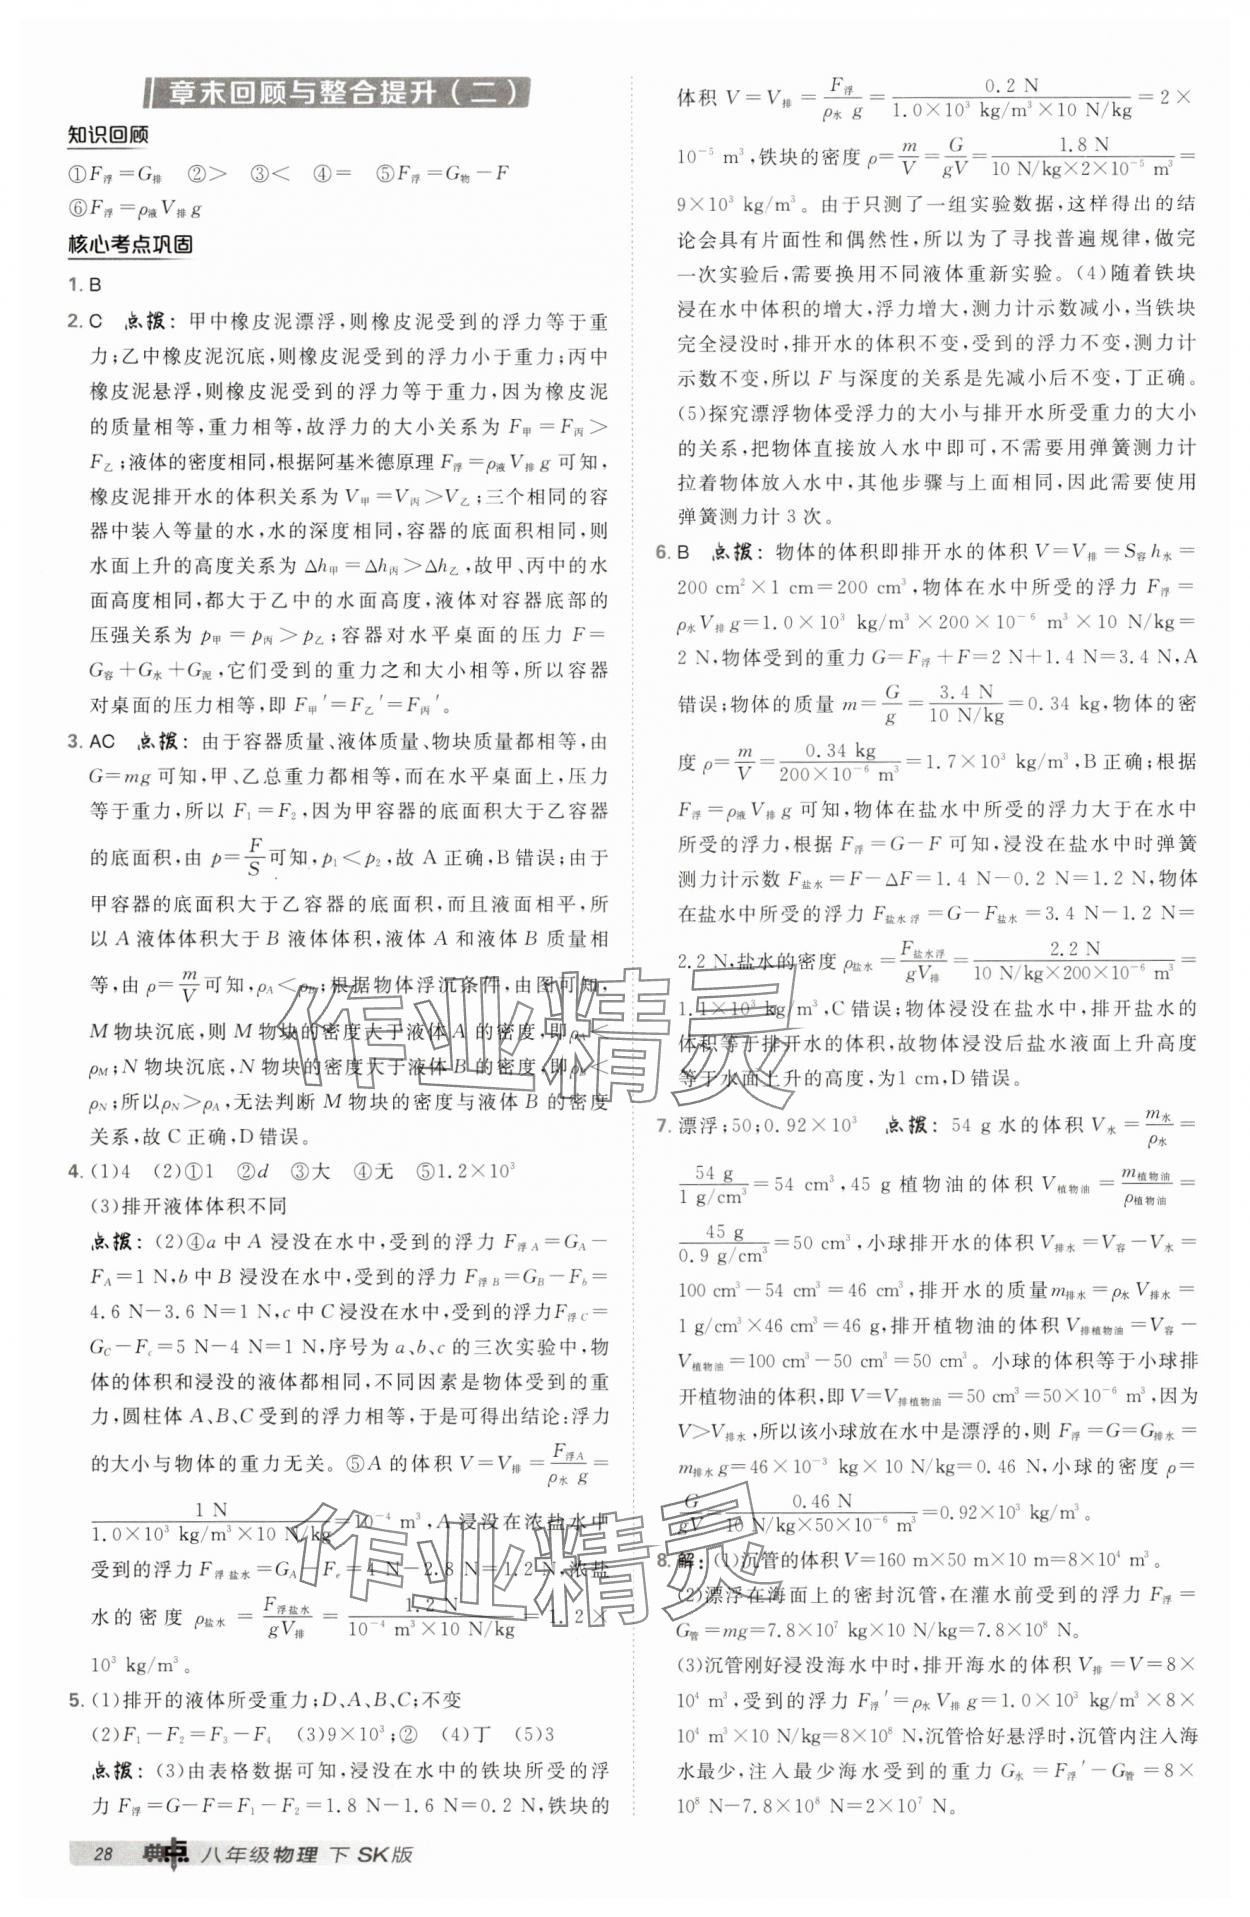 章末回顾与整合提升(二)
知识回顾
①F浮=G排 ②> ③< ④= ⑤F浮=G物-F
⑥F浮=ρ液V排g
核心考点巩固
1. B
2. C 点拨:甲中橡皮泥漂浮,则橡皮泥受到的浮力等于重
力;乙中橡皮泥沉底,则橡皮泥受到的浮力小于重力;丙中
橡皮泥悬浮,则橡皮泥受到的浮力等于重力,因为橡皮泥
的质量相等,重力相等,故浮力的大小关系为F甲=F丙>
F乙;液体的密度相同,根据阿基米德原理F浮=ρ液V排g可知,
橡皮泥排开水的体积关系为V甲=V丙>V乙;三个相同的容
器中装入等量的水,水的深度相同,容器的底面积相同,则
水面上升的高度关系为Δh甲=Δh丙>Δh乙,故甲、丙中的水
面高度相同,都大于乙中的水面高度,液体对容器底部的
压强关系为p甲=p丙>p乙;容器对水平桌面的压力F=
G容+G水+G泥,它们受到的重力之和大小相等,所以容器
对桌面的压力相等,即F甲′=F乙′=F丙′。
3. AC 点拨:由于容器质量、液体质量、物块质量都相等,由
G=mg可知,甲、乙总重力都相等,而在水平桌面上,压力
等于重力,所以F1=F2,因为甲容器的底面积大于乙容器
的底面积,由p=F/S可知,p1<p2,故A正确,B错误;由于
甲容器的底面积大于乙容器的底面积,而且液面相平,所
以A液体体积大于B液体体积,液体A和液体B质量相
等,由ρ=m/V可知,ρA<ρB;根据物体浮沉条件,由图可知,
M物块沉底,则M物块的密度大于液体A的密度,即ρA<
ρM;N物块沉底,N物块的密度大于液体B的密度,即ρB<
ρN;所以ρN>ρA,无法判断M物块的密度与液体B的密度
关系,故C正确,D错误。
4. (1)4 (2)①1 ②d ③大 ④无 ⑤1.2×10³
(3)排开液体体积不同
点拨:(2)④a中A浸没在水中,受到的浮力F浮A=GA-
FA=1 N,b中B浸没在水中,受到的浮力F浮B=GB-Fb=
4.6 N-3.6 N=1 N,c中C浸没在水中,受到的浮力F浮C=
GC-Fc=5 N-4 N=1 N,序号为a、b、c的三次实验中,物
体的体积和浸没的液体都相同,不同因素是物体受到的重
力,圆柱体A、B、C受到的浮力相等,于是可得出结论:浮力
的大小与物体的重力无关。⑤A的体积V=V排=F浮A/ρ水g=
1 N/1.0×10³ kg/m³×10 N/kg=10⁻⁴ m³,A浸没在浓盐水中
受到的浮力F浮盐水=GA-Fe=4 N-2.8 N=1.2 N,浓盐
水的密度ρ盐水=F浮盐水/gV排=1.2 N/10⁻⁴ m³×10 N/kg=1.2×
10³ kg/m³。
5. (1)排开的液体所受重力;D、A、B、C;不变
(2)F1-F2=F3-F4 (3)9×10³;② (4)丁 (5)3
点拨:(3)由表格数据可知,浸没在水中的铁块所受的浮
力F浮=G-F=F1-F2=1.8 N-1.6 N=0.2 N,铁块的
体积V=V排=F浮/ρ水g=0.2 N/1.0×10³ kg/m³×10 N/kg=2×
10⁻⁵ m³,铁块的密度ρ=m/V=G/gV=1.8 N/10 N/kg×2×10⁻⁵ m³=
9×10³ kg/m³。由于只测了一组实验数据,这样得出的结
论会具有片面性和偶然性,所以为了寻找普遍规律,做完
一次实验后,需要换用不同液体重新实验。(4)随着铁块
浸在水中体积的增大,浮力增大,测力计示数减小,当铁块
完全浸没时,排开水的体积不变,受到的浮力不变,测力计
示数不变,所以F与深度的关系是先减小后不变,丁正确。
(5)探究漂浮物体受浮力的大小与排开水所受重力的大小
的关系,把物体直接放入水中即可,不需要用弹簧测力计
拉着物体放入水中,其他步骤与上面相同,因此需要使用
弹簧测力计3次。
6. B 点拨:物体的体积即排开水的体积V=V排=S容h水=
200 cm²×1 cm=200 cm³,物体在水中所受的浮力F浮=
ρ水V排g=1.0×10³ kg/m³×200×10⁻⁶ m³×10 N/kg=
2 N,物体受到的重力G=F浮+F=2 N+1.4 N=3.4 N,A
错误;物体的质量m=G/g=3.4 N/10 N/kg=0.34 kg,物体的密
度ρ=m/V=0.34 kg/200×10⁻⁶ m³=1.7×10³ kg/m³,B正确;根据
F浮=ρ液V排g可知,物体在盐水中所受的浮力大于在水中
所受的浮力,根据F浮=G-F可知,浸没在盐水中时弹簧
测力计示数F盐水=F-ΔF=1.4 N-0.2 N=1.2 N,物体
在盐水中所受的浮力F盐水浮=G-F盐水=3.4 N-1.2 N=
2.2 N,盐水的密度ρ盐水=F盐水浮/gV排=2.2 N/10 N/kg×200×10⁻⁶ m³=
1.1×10³ kg/m³,C错误;物体浸没在盐水中,排开盐水的
体积等于排开水的体积,故物体浸没后盐水液面上升高度
等于水面上升的高度,为1 cm,D错误。
7. 漂浮;50;0.92×10³ 点拨:54 g水的体积V水=m水/ρ水=
54 g/1 g/cm³=54 cm³,45 g植物油的体积V植物油=m植物油/ρ植物油=
45 g/0.9 g/cm³=50 cm³,小球排开水的体积V排水=V容-V水=
100 cm³-54 cm³=46 cm³,排开水的质量m排水=ρ水V排水=
1 g/cm³×46 cm³=46 g,排开植物油的体积V排植物油=V容-
V植物油=100 cm³-50 cm³=50 cm³。小球的体积等于小球排
开植物油的体积,即V=V排植物油=50 cm³=50×10⁻⁶ m³,因为
V>V排水,所以该小球放在水中是漂浮的,则F浮=G=G排水=
m排水g=46×10⁻³ kg×10 N/kg=0.46 N,小球的密度ρ=
G/gV=0.46 N/10 N/kg×50×10⁻⁶ m³=0.92×10³ kg/m³。
8. 解:(1)沉管的体积V=160 m×50 m×10 m=8×10⁴ m³。
(2)漂浮在海面上的密封沉管,在灌水前受到的浮力F浮=
G管=mg=7.8×10⁷ kg×10 N/kg=7.8×10⁸ N。
(3)沉管刚好浸没海水中时,排开海水的体积V排=V=8×
10⁴ m³,受到的浮力F浮′=ρ水V排g=1.0×10³ kg/m³×8×
10⁴ m³×10 N/kg=8×10⁸ N,沉管恰好悬浮时,沉管内注入海
水最少,注入最少海水受到的重力G水=F浮′-G管=8×
10⁸ N-7.8×10⁸ N=2×10⁷ N。
作业精灵
作业精灵
28 典点 八年级物理 下 SK版